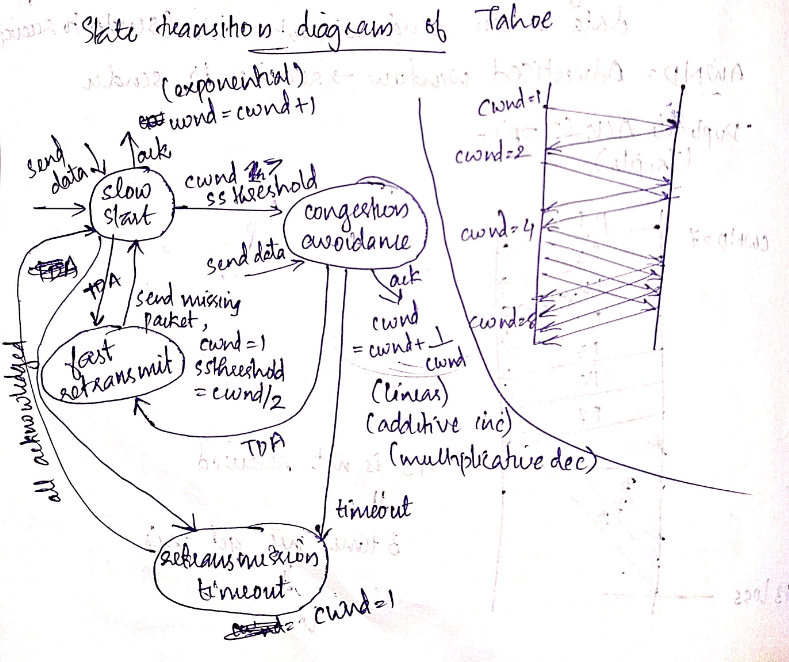 State transition diagram of Tahoe
(exponential)
cwnd = cwnd+1
send
data
ack
slow
start
cwnd >
ssthreshold
congestion
avoidance
send data
ack
cwnd
= cwnd + 1/cwnd
(linear)
(additive inc)
(multiplicative dec)
TDA
send missing
packet,
cwnd=1
ssthreshold
= cwnd/2
fast
retransmit
TDA
all acknowledged
timeout
retransmission
timeout
cwnd=1
cwnd=1
cwnd=2
cwnd=4
cwnd=8